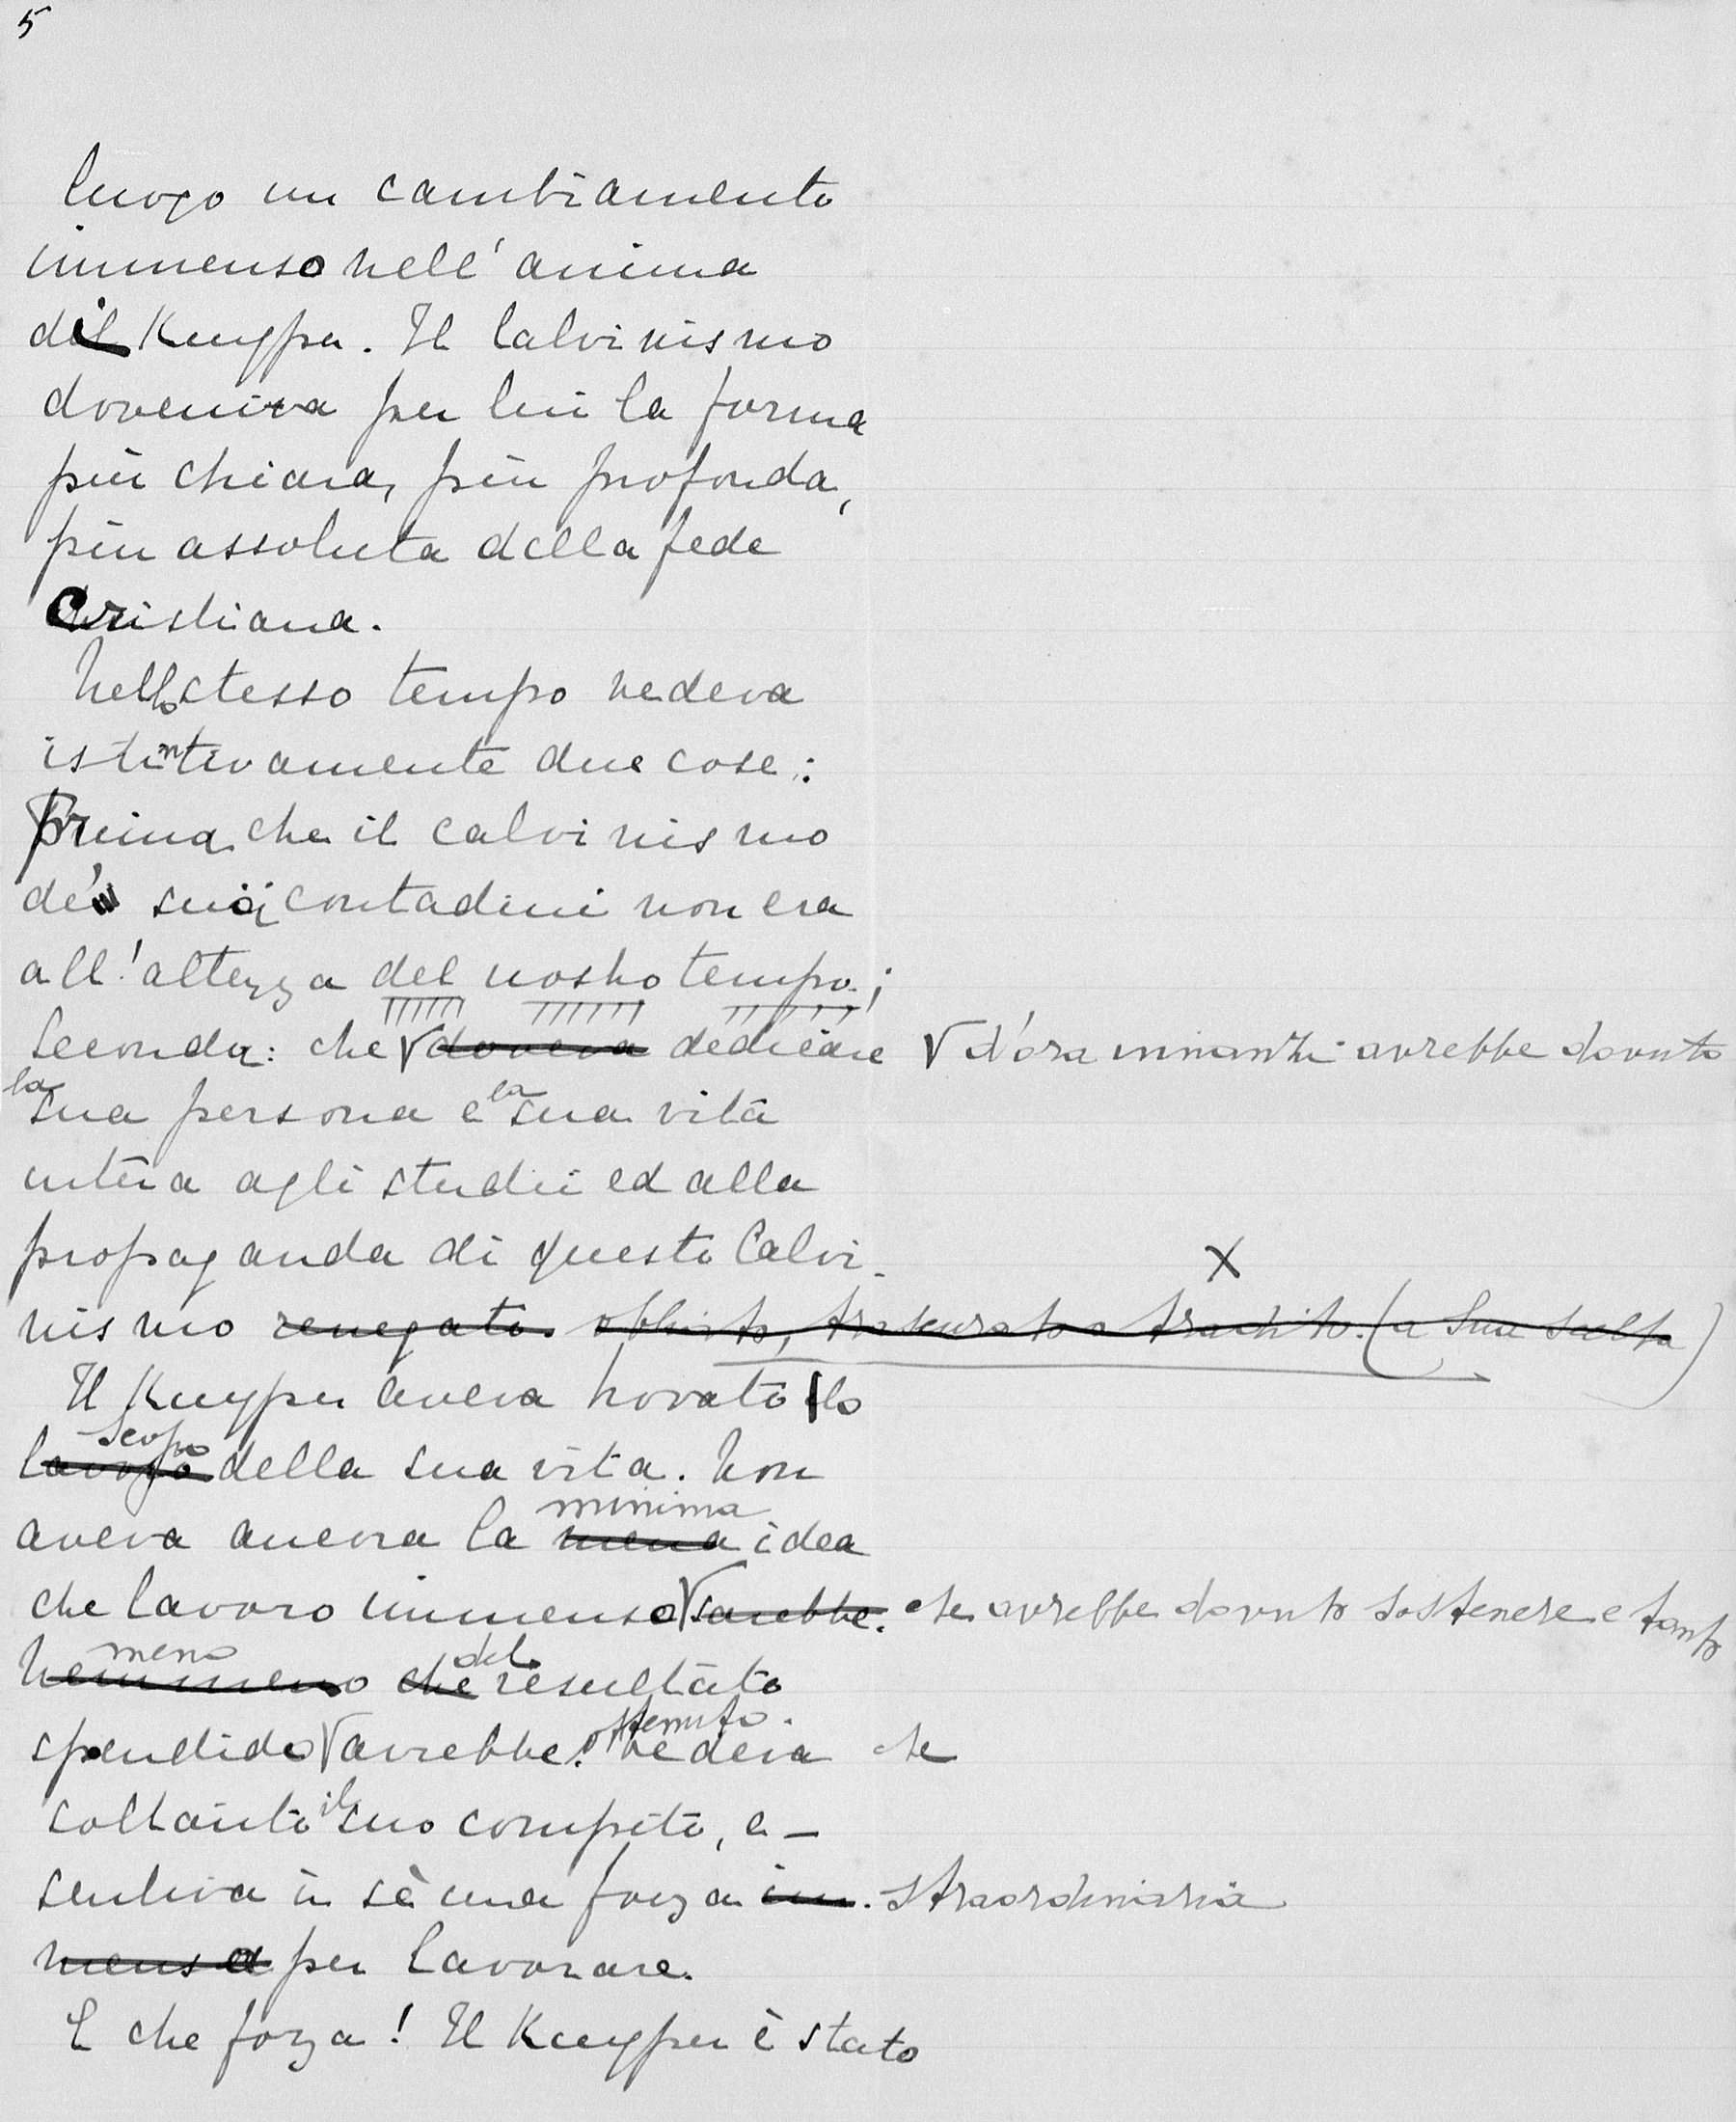 5
luogo un cambiamento
immenso nell' anima
del Kuyper. Il Calvinismo
doveniva per lui la forma
più chiara, più profonda,
più assoluta della fede
Cristiana.
Nello stesso tempo vedeva
istintivamente due cose:
Prima che il calvinismo
de' suoi contadini non era
all' altezza del nostro tempo;
Seconda: che √ doveva dedicare √ d'ora innanzi avrebbe dovuto
la sua persona e la sua vita
intera agli studii ed alla
propaganda di questo Calvi-
X
nismo renegato. obliato, trascurato o tradito. (a Sua scelta)
Il Kuyper aveva trovato lo
scopo
lavoro della sua vita. Non
minima
aveva ancora la mena idea
che lavoro immenso √ sarebbe. che avrebbe dovuto sostenere e tanto
meno del
Nemmeno che resultato
ottenuto.
splendido √ avrebbe. Vedeva che
soltanto il suo compito, e -
sentiva in sè una forza im- straordinaria
mensa per lavorare.
E che forza! Il Kuyper è stato